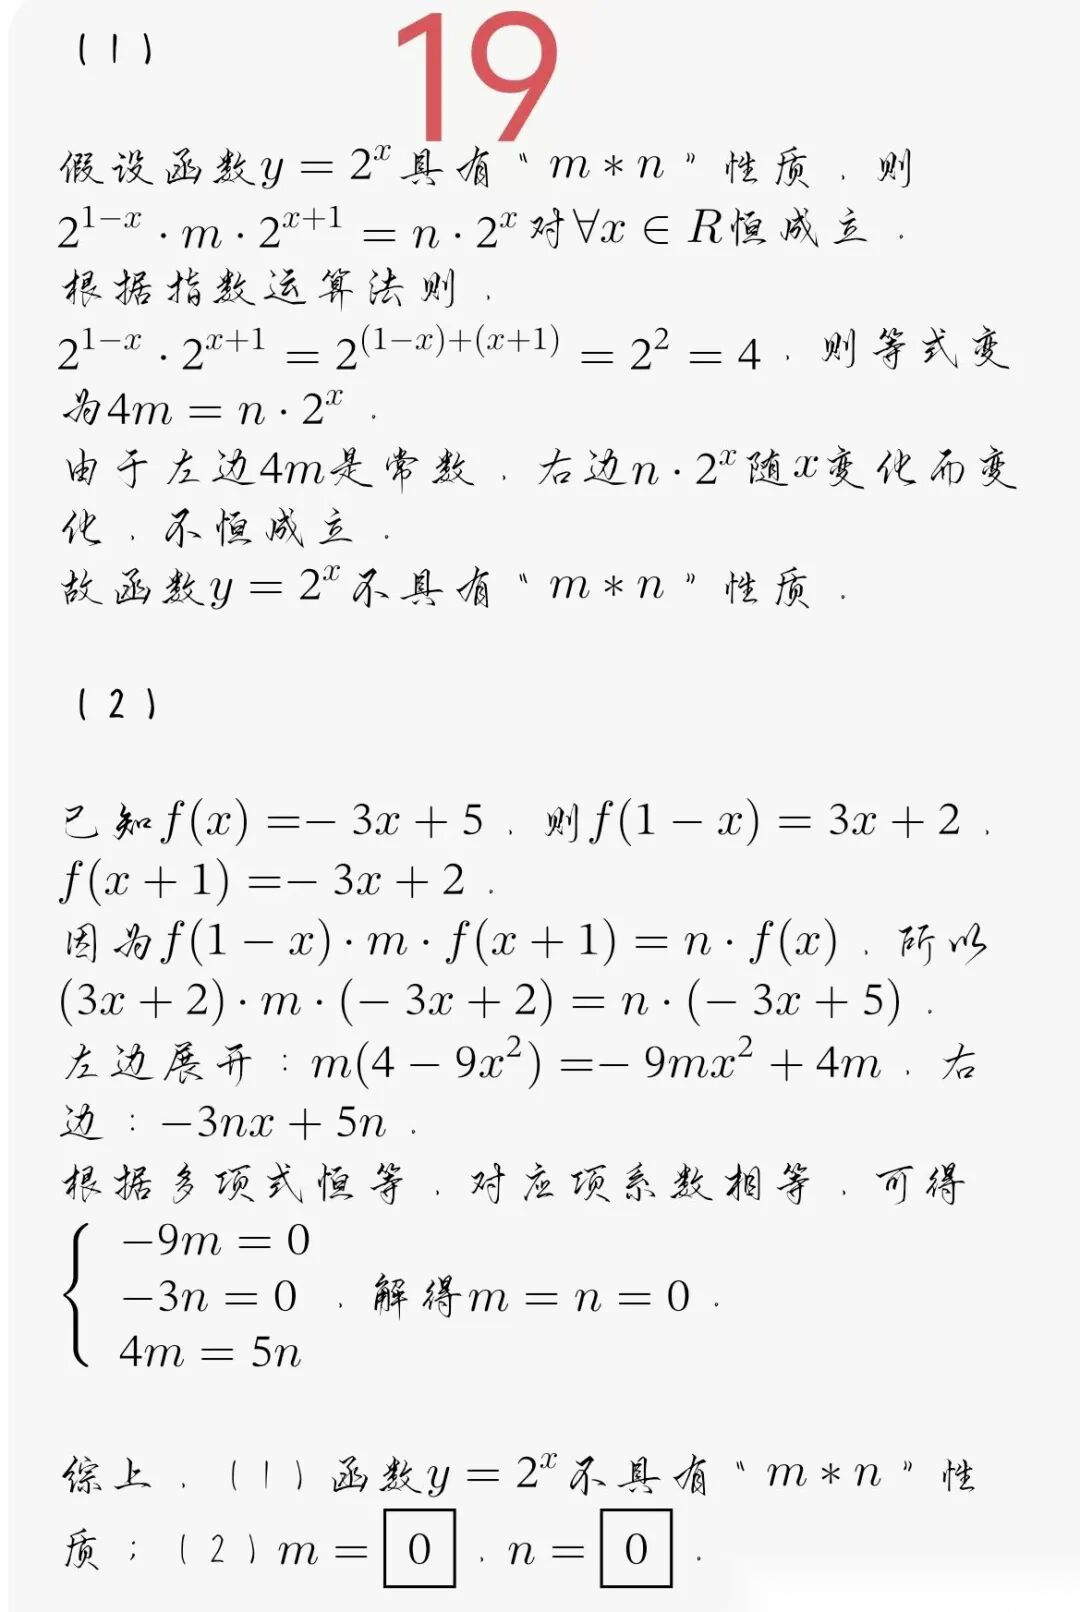 (1)
19
假设函数y = 2^x具有“m * n”性质，则
2^{1-x} · m · 2^{x+1} = n · 2^x对∀x ∈ R恒成立.
根据指数运算法则，
2^{1-x} · 2^{x+1} = 2^{(1-x)+(x+1)} = 2^2 = 4，则等式变
为4m = n · 2^x.
由于左边4m是常数，右边n · 2^x随x变化而变
化，不恒成立.
故函数y = 2^x不具有“m * n”性质.
(2)
已知f(x) =− 3x + 5，则f(1 − x) = 3x + 2，
f(x + 1) =− 3x + 2.
因为f(1 − x) · m · f(x + 1) = n · f(x)，所以
(3x + 2) · m · (− 3x + 2) = n · (− 3x + 5).
左边展开：m(4 − 9x^2) =− 9mx^2 + 4m，右
边：−3nx + 5n.
根据多项式恒等，对应项系数相等，可得
−9m = 0
−3n = 0，解得m = n = 0.
4m = 5n
综上，(1)函数y = 2^x不具有“m * n”性
质；(2) m = 0，n = 0.